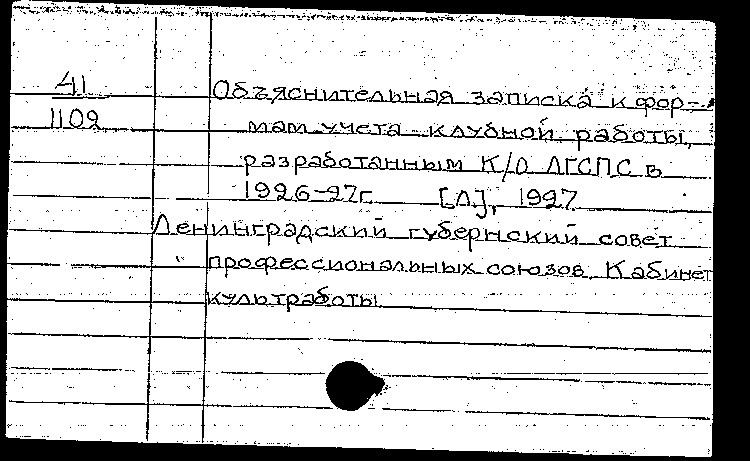 41
1109
Объяснительная записка к фор-
мам учета клубной работы,
разработанным К/О ЛГСПС в
1926-27г. [Л], 1927
Ленинградский губернский совет
" профессиональных союзов. Кабинет
культработы